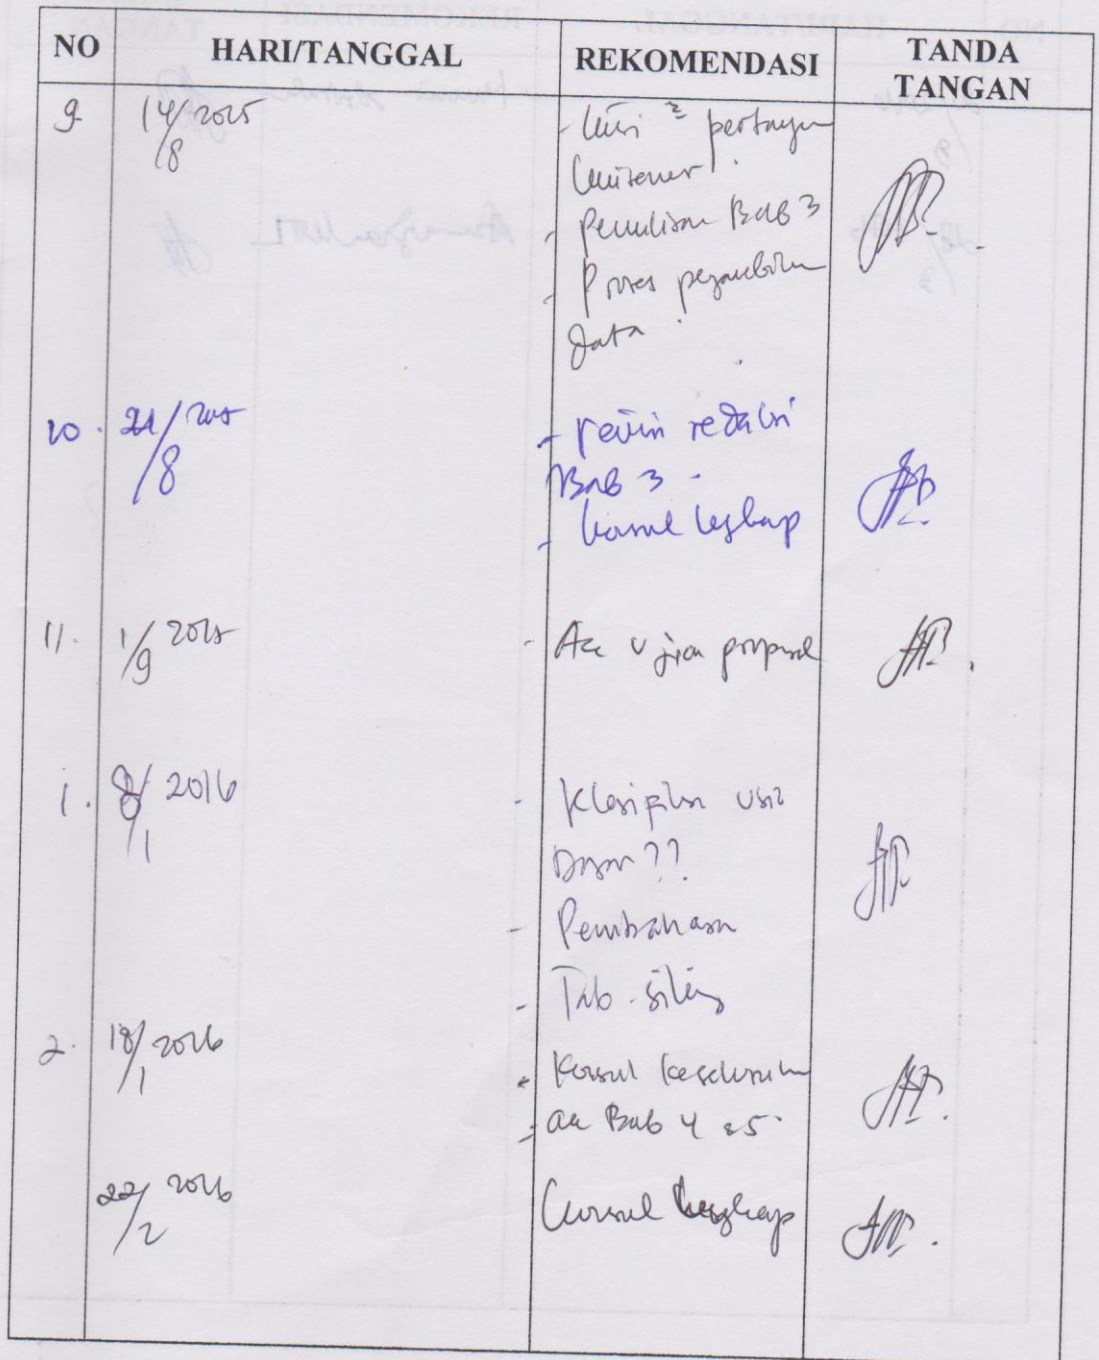 NO HARI/TANGGAL REKOMENDASI TANDA TANGAN
9. 14/8 2015 - kisi² pertanyaan
kuisener.
- Penulisan Bab 3
- Proses pengambilan
data.
10. 21/8 2015 - revisi redaksi
Bab 3.
- konsul lengkap
11. 1/9 2015 - Acc ujian proposal
1. 8/1 2016 - Klasifikasi usia
Dasar??
- Pembahasan
- Tab. silang
2. 18/1 2016 - Konsul keseluruhan
- acc Bab 4 & 5.
22/2 2016 Konsul lengkap